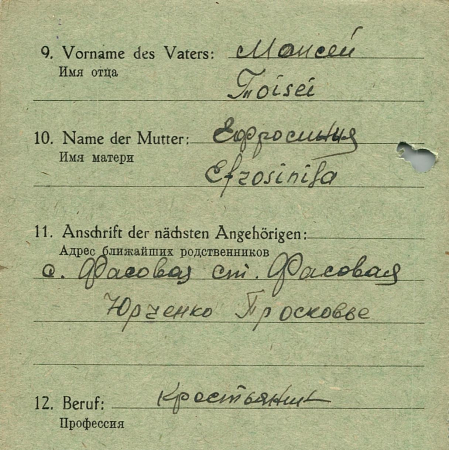 9. Vorname des Vaters: Моисей
Имя отца
Moisei
10. Name der Mutter: Ефросиния
Имя матери
Efrosinija
11. Anschrift der nächsten Angehörigen:
Адрес ближайших родственников
с. Фасовая ст. Фасовая
Юрченко Просковье
12. Beruf: Крестьянин
Профессия